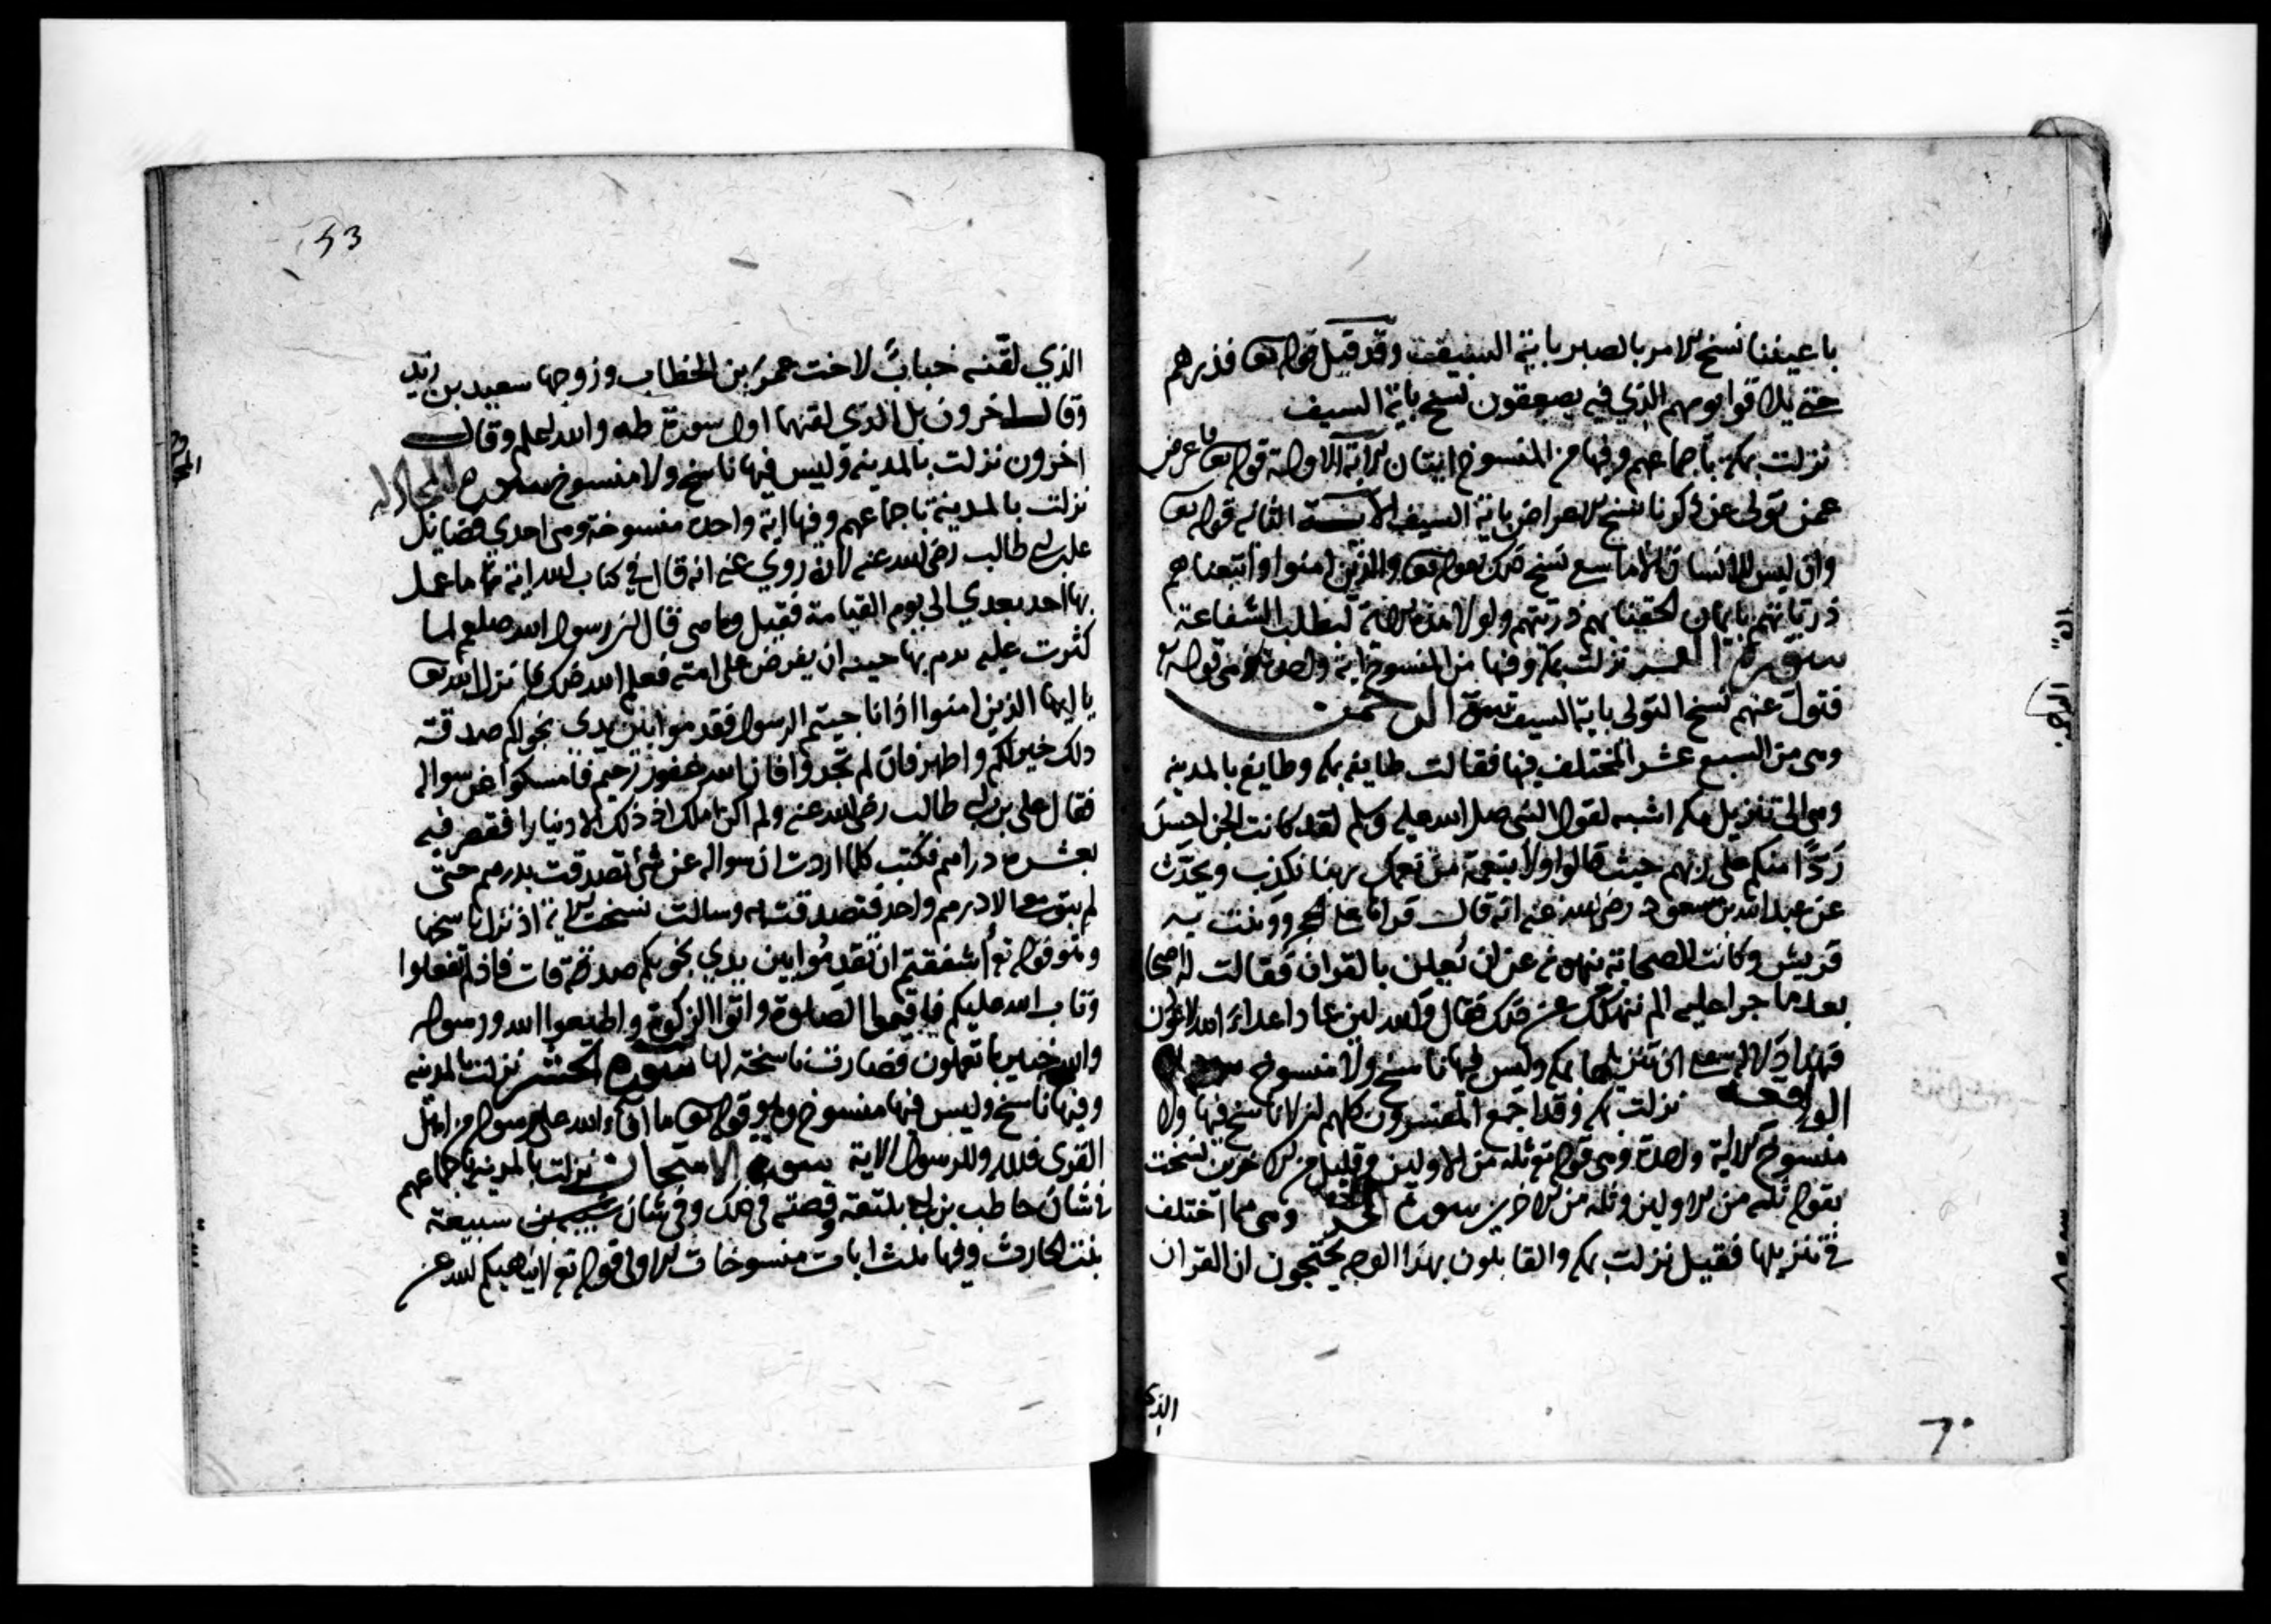 باعيننا نسخ الامر بالصبر باية السيف وقد قيل قوله تعا فذرهم
حتى يلاقوا يومهم الذي فيه يصعقون نسخ باية السيف
نزلت بمكة باجماعهم وفيها من المنسوخ ايتان الاية الاولة قوله تعا فاعرض
عمن تولى عن ذكرنا نسخ الاعراض باية السيف الاية الثانية قوله تعا
وان ليس للانسان الا ما سعى نسخ ذلك بقوله تعا والذين امنوا واتبعناهم
ذرياتهم بايمان الحقنا بهم ذريتهم ولولا هذه الاية لبطلت الشفاعة
سورة القمر نزلت بمكة وفيها من المنسوخ اية واحدة وهي قوله تعا
فتول عنهم نسخ التولى باية السيف سورة الرحمن
وهي من السبع عشر المختلف فيها فقالت طايفة بمكة وطايفة بالمدينة
وهي الى تنزيل مكة اشبه لقول النبي صلى الله عليه وسلم لقد كانت الجن احسن
ردا منكم على ربهم حيث قالوا ولا بنعمة من نعمك ربنا نكذب ويحدث
عن عبد الله بن مسعود رضي الله عنه انه قال قراتها على الحجر ووثبت بيه
قريش وكانت الصحابة ينهونه عن ان يعلن بالقران فقالت له اصحابه
بعد ما جرا عليه الم ننهك عن ذلك فقال والله لين عاد اعداء الله لاعودن
فهذا دلالة على ان تنزيلها بمكة وليس فيها ناسخ ولا منسوخ سورة
الواقعة نزلت بمكة وقد اجمع المفسرون كلهم ان لا ناسخ فيها ولا
منسوخ الا اية واحدة وهي قوله تع ثلة من الاولين وقليل من الاخرين نسخت
بقوله ثلة من الاولين وثلة من الاخرين سورة الحديد وهي مما اختلف
في تنزيلها فقيل نزلت بمكة والقايلون بهذا الوجه يحتجون ان القران
الذي
٦٠
53
الذي لقنه خباب لاخت عمر بن الخطاب وزوجها سعيد بن زيد
وقال اخرون بل الذي لقنهما اول سورة طه والله اعلم وقال
اخرون نزلت بالمدينة وليس فيها ناسخ ولا منسوخ سورة المجادلة
نزلت بالمدينة باجماعهم وفيها اية واحدة منسوخة وهي احدى فضايل
على بن ابى طالب رضي الله عنه لانه روي عنه انه قال في كتاب الله اية ما عمل
بها احد بعدي الى يوم القيامة فقيل وما هي قال ان رسول الله صلعم لما
كثرت عليه خشى ان يفرض على امته فعلم الله ذلك فانزل الله تعا
يا ايها الذين امنوا اذا ناجيتم الرسول فقدموا بين يدى نجواكم صدقة
ذلك خير لكم واطهر فان لم تجدوا فان الله غفور رحيم فامسكوا عن سواله
فقال على بن ابى طالب رضي الله عنه ولم اكن املك اذ ذلك الا دينارا فصرفه
بعشرة دراهم فكنت كلما اردت ان سواله عن شي تصدقت بدرهم حتى
لم يبق معى الا درهم واحد فتصدقت به وسالت نسخت الاية اذ نزل ناسخها
وهو قوله تع ااشفقتم ان تقدموا بين يدي نجويكم صدقات فاذ لم تفعلوا
وتاب الله عليكم فاقيموا الصلوة واتوا الزكوة واطيعوا الله ورسوله
والله خبير بما تعملون فصارت ناسخة لها سورة الحشر نزلت بالمدينة
وفيها ناسخ وليس فيها منسوخ وهو قوله تعا ما افاء الله على رسوله من اهل
القرى فلله وللرسول الاية سورة الامتحان نزلت بالمدينة باجماعهم
في شان حاطب بن ابى بلتعة وقصته في ذلك وفي شان سبيعة
بنت الحارث وفيها ثلث ايات منسوخات الاولى قوله تع لا ينهيكم الله عن